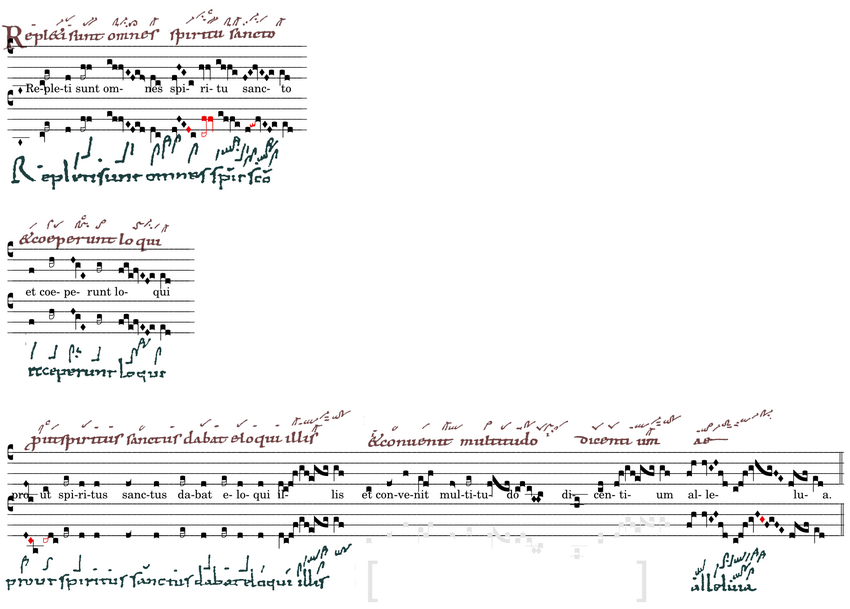 Repleti sunt omnes spiritu sancto
Re-ple-ti sunt om- nes spi- ri- tu sanc- to
Repleti sunt omnes sp̄ir s̄cō
&coeperunt loqui
et coe- pe- runt lo- qui
etceperunt loqui
put spiritus sanctus dabat eloqui illis &conuenit multitudo dicenti um ae
pro ut spi-ri-tus sanc-tus da-bat e-lo-qui il- lis et con-ve-nit mul-ti-tu- do di- cen-ti- um al-le- lu- a.
prout spiritus sanctus dabat eloqui illis [ ] alleluia